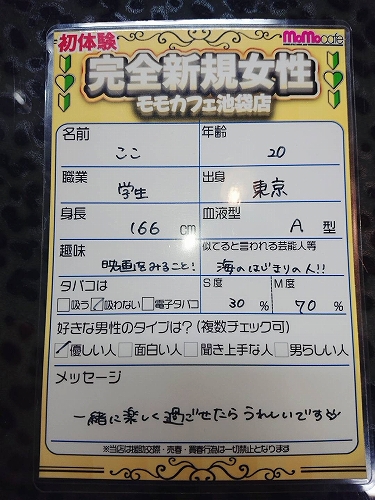 初体験
MoMocafe
完全新規女性
モモカフェ池袋店
名前 ここ
年齢 20
職業 学生
出身 東京
身長 166 cm
血液型 A 型
趣味 映画をみること!
似てると言われる芸能人等 海のはじまりの人!!
タバコは 吸う 吸わない 電子タバコ
S度 30 %
M度 70 %
好きな男性のタイプは?(複数チェック可)
優しい人 面白い人 聞き上手な人 男らしい人
メッセージ
一緒に楽しく過ごせたらうれしいです
※当店は援助交際・売春・買春行為は一切禁止となります